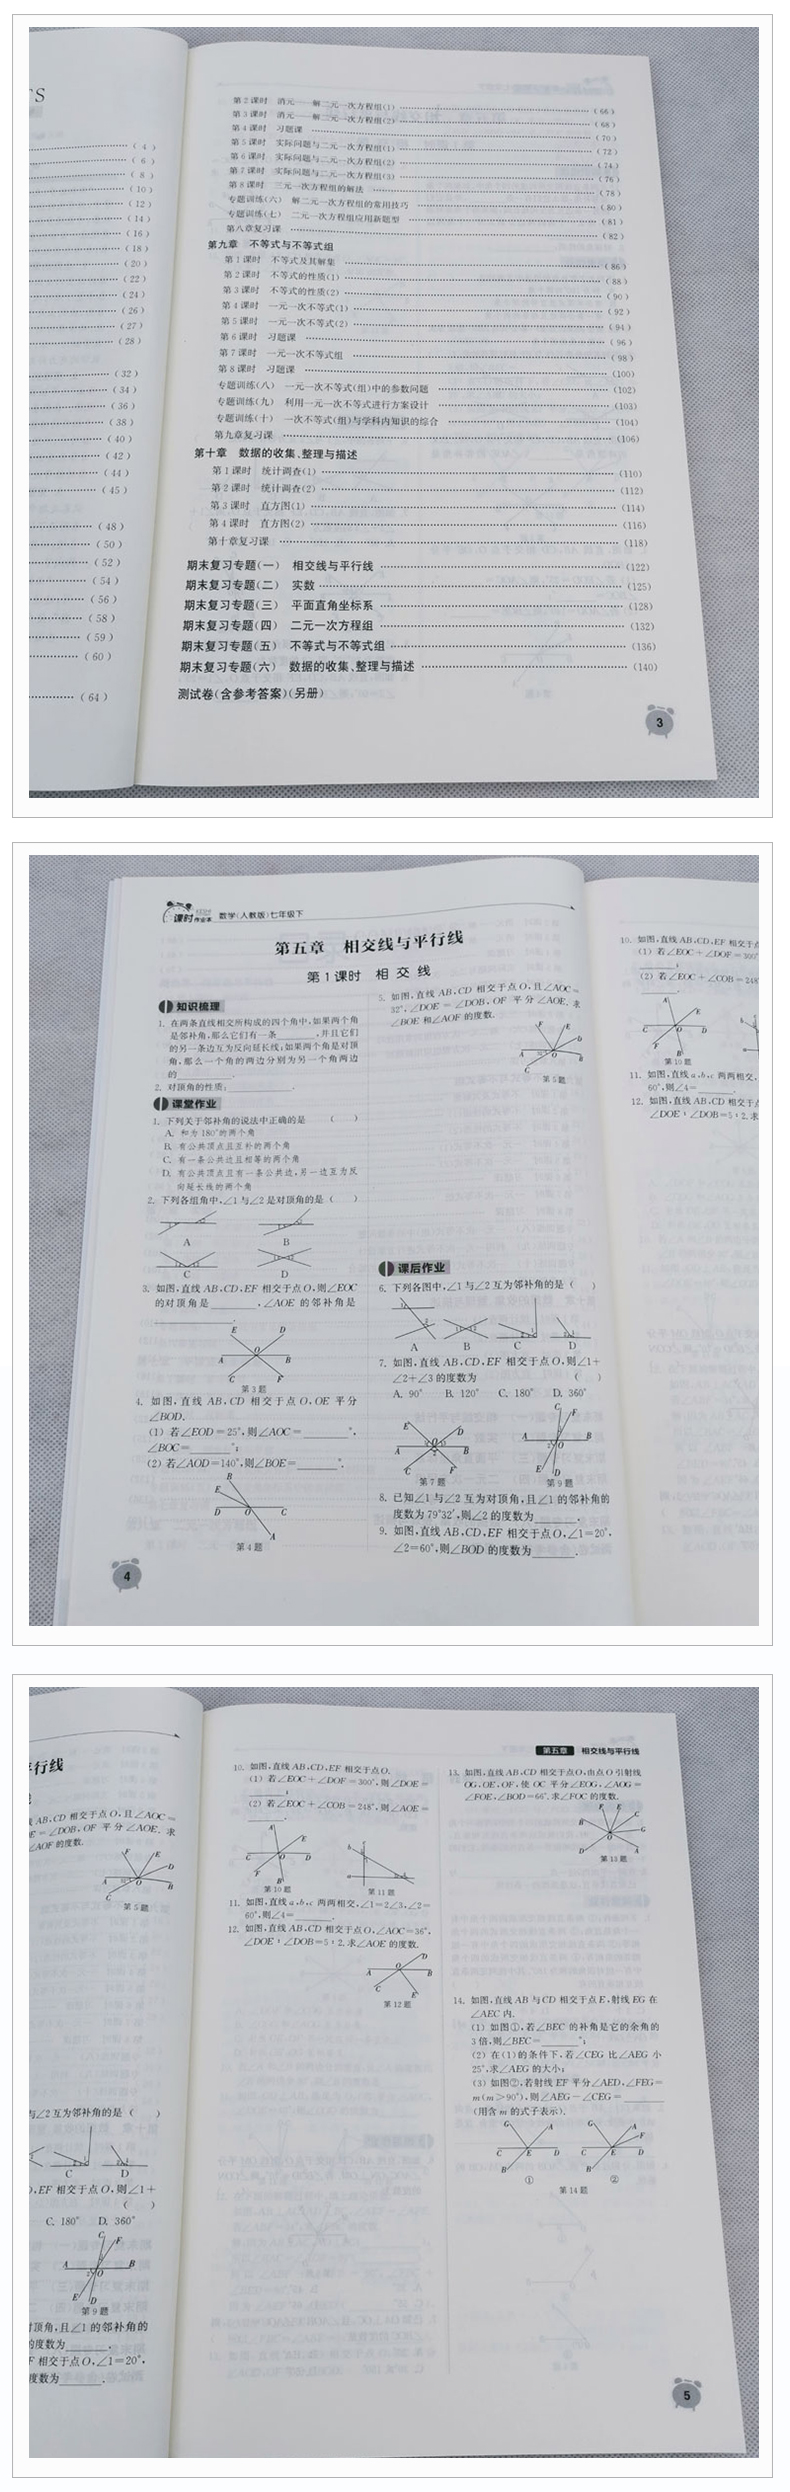 TS
( 4 )
( 6 )
( 8 )
( 10 )
( 12 )
( 14 )
( 16 )
( 18 )
( 20 )
( 22 )
( 24 )
( 26 )
( 27 )
( 28 )
( 32 )
( 34 )
( 36 )
( 38 )
( 40 )
( 42 )
( 44 )
( 45 )
( 48 )
( 50 )
( 52 )
( 54 )
( 56 )
( 58 )
( 59 )
( 60 )
( 64 )
第2课时 消元——解二元一次方程组(1) ( 66 )
第3课时 消元——解二元一次方程组(2) ( 68 )
第4课时 习题课 ( 70 )
第5课时 实际问题与二元一次方程组(1) ( 72 )
第6课时 实际问题与二元一次方程组(2) ( 74 )
第7课时 实际问题与二元一次方程组(3) ( 76 )
第8课时 三元一次方程组的解法 ( 78 )
专题训练(六) 解二元一次方程组的常用技巧 ( 80 )
专题训练(七) 二元一次方程组应用新题型 ( 81 )
第八章复习课 ( 82 )
第九章 不等式与不等式组
第1课时 不等式及其解集 ( 86 )
第2课时 不等式的性质(1) ( 88 )
第3课时 不等式的性质(2) ( 90 )
第4课时 一元一次不等式(1) ( 92 )
第5课时 一元一次不等式(2) ( 94 )
第6课时 习题课 ( 96 )
第7课时 一元一次不等式组 ( 98 )
第8课时 习题课 (100)
专题训练(八) 一元一次不等式(组)中的参数问题 (102)
专题训练(九) 利用一元一次不等式进行方案设计 (103)
专题训练(十) 一次不等式(组)与学科内知识的综合 (104)
第九章复习课 (106)
第十章 数据的收集、整理与描述
第1课时 统计调查(1) (110)
第2课时 统计调查(2) (112)
第3课时 直方图(1) (114)
第4课时 直方图(2) (116)
第十章复习课 (118)
期末复习专题(一) 相交线与平行线 (122)
期末复习专题(二) 实数 (125)
期末复习专题(三) 平面直角坐标系 (128)
期末复习专题(四) 二元一次方程组 (132)
期末复习专题(五) 不等式与不等式组 (136)
期末复习专题(六) 数据的收集、整理与描述 (140)
测试卷(含参考答案)(另册)
3
课时作业本 数学(人教版)七年级下
第五章 相交线与平行线
第1课时 相交线
知识梳理
1. 在两条直线相交所构成的四个角中,如果两个角
是邻补角,那么它们有一条________,并且它们
的另一条边互为反向延长线;如果两个角是对顶
角,那么一个角的两边分别为另一个角两边
的________.
2. 对顶角的性质:________.
课堂作业
1. 下列关于邻补角的说法中正确的是 ( )
A. 和为180°的两个角
B. 有公共顶点且互补的两个角
C. 有一条公共边且相等的两个角
D. 有公共顶点且有一条公共边,另一边互为反
向延长线的两个角
2. 下列各组角中,∠1与∠2是对顶角的是 ( )
A B
C D
3. 如图,直线AB,CD,EF相交于点O,则∠EOC
的对顶角是________,∠AOE的邻补角是
________.
E D
A O B
C F
第3题
4. 如图,直线AB,CD相交于点O,OE平分
∠BOD.
(1) 若∠EOD=25°,则∠AOC=________°,
∠BOC=________°;
(2) 若∠AOD=140°,则∠BOE=________°.
B
E
D O C
A
第4题
4
5. 如图,直线AB,CD相交于点O,且∠AOC=
32°,∠DOE=∠DOB,OF平分∠AOE.求
∠BOE和∠AOF的度数.
第5题
课后作业
6. 下列各图中,∠1与∠2互为邻补角的是 ( )
A B C D
7. 如图,直线AB,CD,EF相交于点O,则∠1+
∠2+∠3的度数为 ( )
A. 90° B. 120° C. 180° D. 360°
第7题 第9题
8. 已知∠1与∠2互为对顶角,且∠1的邻补角的
度数为79°32′,则∠2的度数为________.
9. 如图,直线AB,CD,EF相交于点O,∠1=20°,
∠2=60°,则∠BOD的度数为________.
10. 如图,直线AB,CD,EF相交于点
(1) 若∠EOC+∠DOF=300°
(2) 若∠EOC+∠COB=248°
第10题
11. 如图,直线a,b,c两两相交,
60°,则∠4=________.
12. 如图,直线AB,CD相交于点
∠DOE∶∠DOB=5∶2.求
平行线
AB,CD相交于点O,且∠AOC=
∠DOB,OF平分∠AOE.求
∠AOF的度数.
第5题
与∠2互为邻补角的是 ( )
C D
,EF相交于点O,则∠1+
( )
C. 180° D. 360°
第9题
对顶角,且∠1的邻补角的
的度数为________.
相交于点O,∠1=20°,
度数为________.
第五章 相交线与平行线
10. 如图,直线AB,CD,EF相交于点O.
(1) 若∠EOC+∠DOF=300°,则∠DOE=
________;
(2) 若∠EOC+∠COB=248°,则∠AOE=
________.
第10题 第11题
11. 如图,直线a,b,c两两相交,∠1=2∠3,∠2=
60°,则∠4=________.
12. 如图,直线AB,CD相交于点O,∠AOC=36°,
∠DOE∶∠DOB=5∶2.求∠AOE的度数.
第12题
13. 如图,直线AB,CD相交于点O,由点O引射线
OG,OE,OF,使OC平分∠EOG,∠AOG=
∠FOE,∠BOD=66°.求∠FOC的度数.
第13题
14. 如图,直线AB与CD相交于点E,射线EG在
∠AEC内.
(1) 如图①,若∠BEC的补角是它的余角的
3倍,则∠BEC=________°;
(2) 在(1)的条件下,若∠CEG比∠AEG小
25°,求∠AEG的大小;
(3) 如图②,若射线EF平分∠AED,∠FEG=
m(m>90°),则∠AEG-∠CEG=________
(用含m的式子表示).
G A G A
F
C E D C E D
B B
① ②
第14题
5